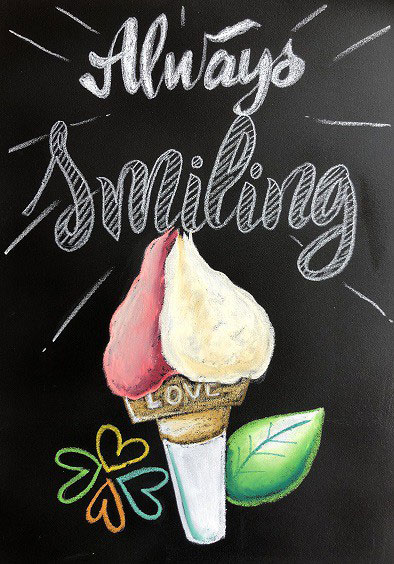 Always
Smiling
LOVE